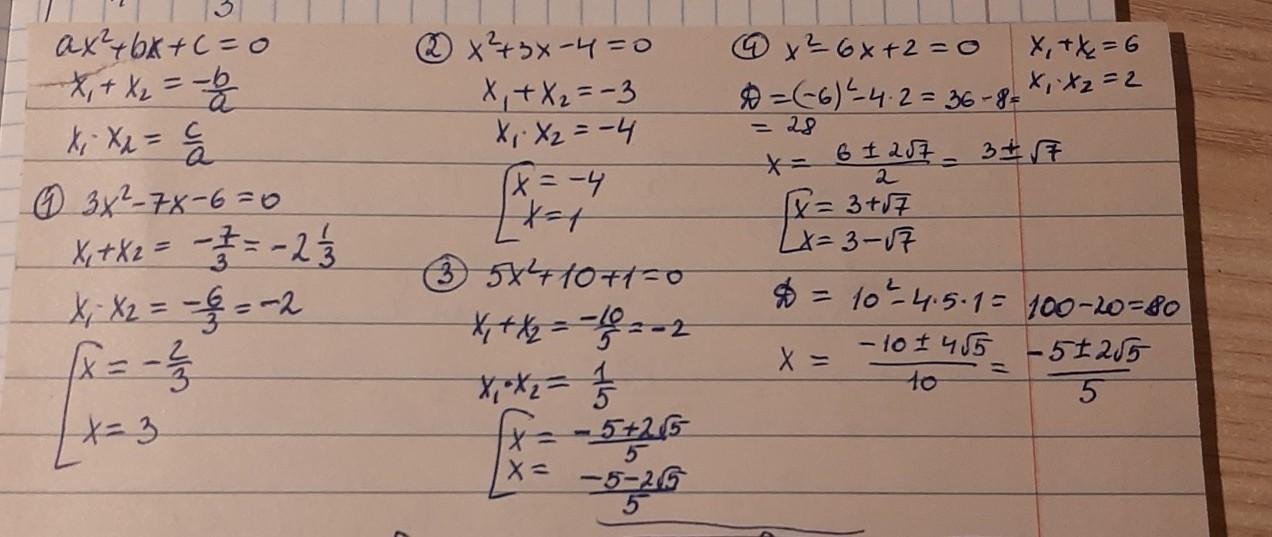 ax²+bx+c=0
x₁+x₂ = -b/a
x₁·x₂ = c/a
① 3x²-7x-6=0
x₁+x₂ = -7/3 = -2 1/3
x₁·x₂ = -6/3 = -2
[x = -2/3
x = 3
② x²+3x-4=0
x₁+x₂ = -3
x₁·x₂ = -4
[x = -4
x = 1
③ 5x²+10+1=0
x₁+x₂ = -10/5 = -2
x₁·x₂ = 1/5
[x = (-5+2√5)/5
x = (-5-2√5)/5
④ x²-6x+2=0
D = (-6)²-4·2 = 36-8=
= 28
x = (6±2√7)/2 = 3±√7
[x = 3+√7
x = 3-√7
D = 10²-4·5·1 = 100-20=80
x = (-10±4√5)/10 = (-5±2√5)/5
x₁+x₂=6
x₁·x₂=2